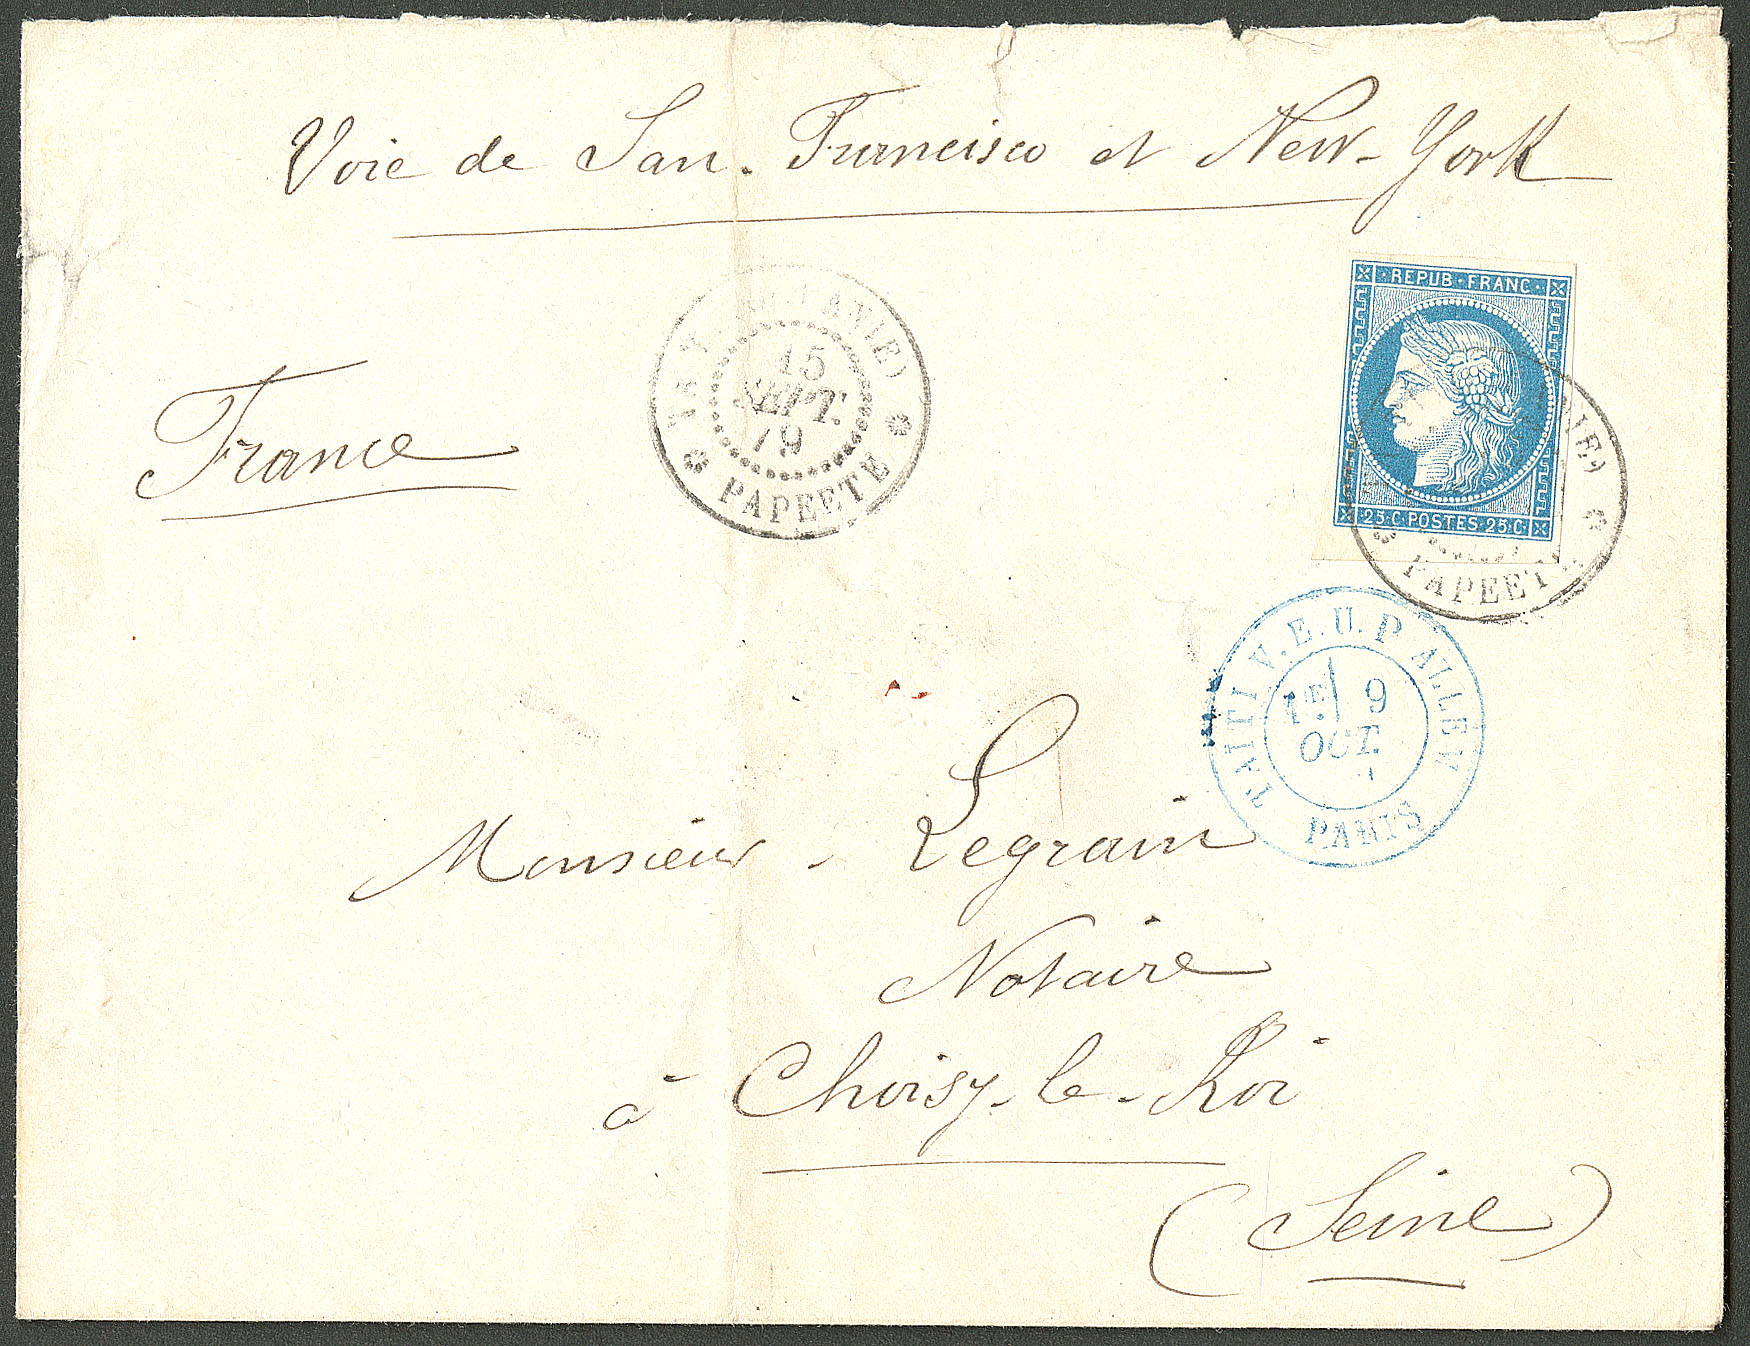 Voie de San-Francisco et New-York
REPUB·FRANC·
25·C·POSTES·25·C·
France
15
SEPT.
79
PAPEETE
PAPEETE
TAITI V.E.U.P ALLEV
1E 9
OCT.
PARIS
Monsieur - Legrain
Notaire
à Choisy-le-Roi
(Seine)